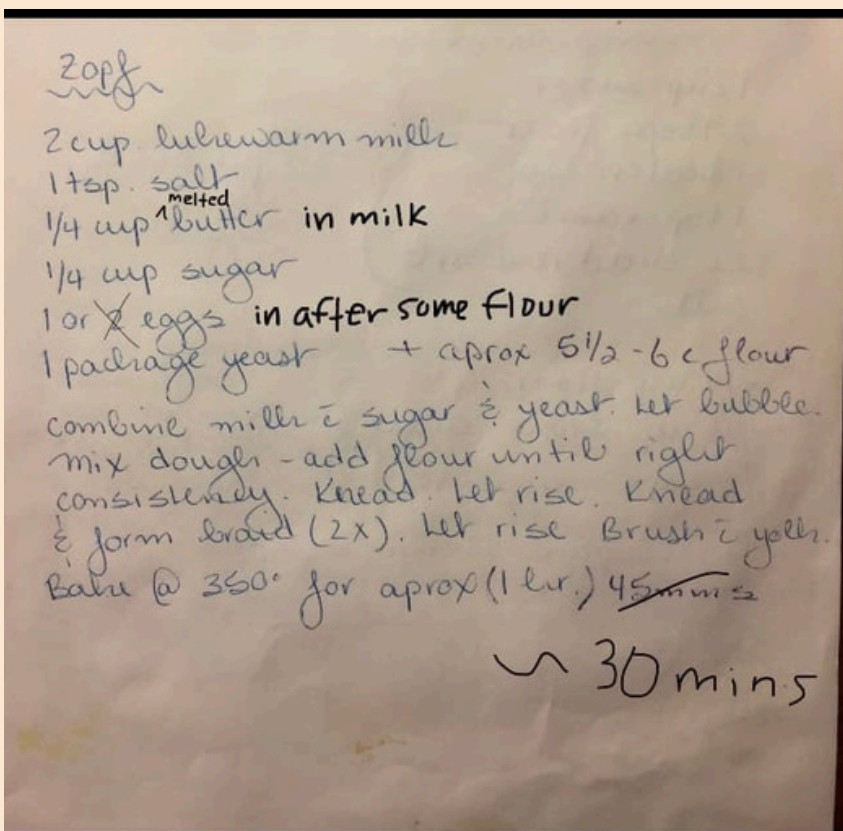 Zopf
2 cup lukewarm milk
1 tsp. salt
1/4 cup ^melted butter in milk
1/4 cup sugar
1 or 2 eggs in after some flour
1 package yeast + aprox 5 1/2 - 6 c flour
combine milk c̄ sugar & yeast. Let bubble.
mix dough - add flour until right
consistency. Knead. Let rise. Knead
& form braid (2x). Let rise Brush c̄ yolk.
Bake @ 350° for aprox (1 hr.) 45 mins
~ 30 mins